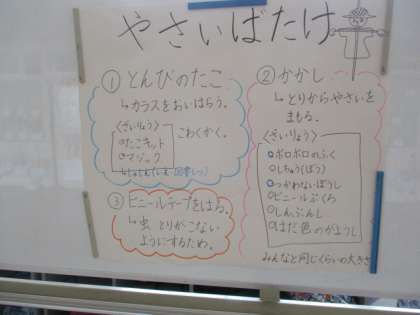 やさいばたけ
①とんびのたこ
↳カラスをおいはらう。
〈ざいりょう〉
こわくかく。
○たこキット
○マジック
③ビニールテープをはる。
↳虫、とりがこない
ようにするため。
②かかし
↳とりからやさいを
まもる。
〈ざいりょう〉
○ボロボロのふく
○しちゅう(ぼう)
○つかわないぼうし
○ビニールぶくろ
○しんぶんし
○はだ色のがようし
みんなと同じくらいの大きさ